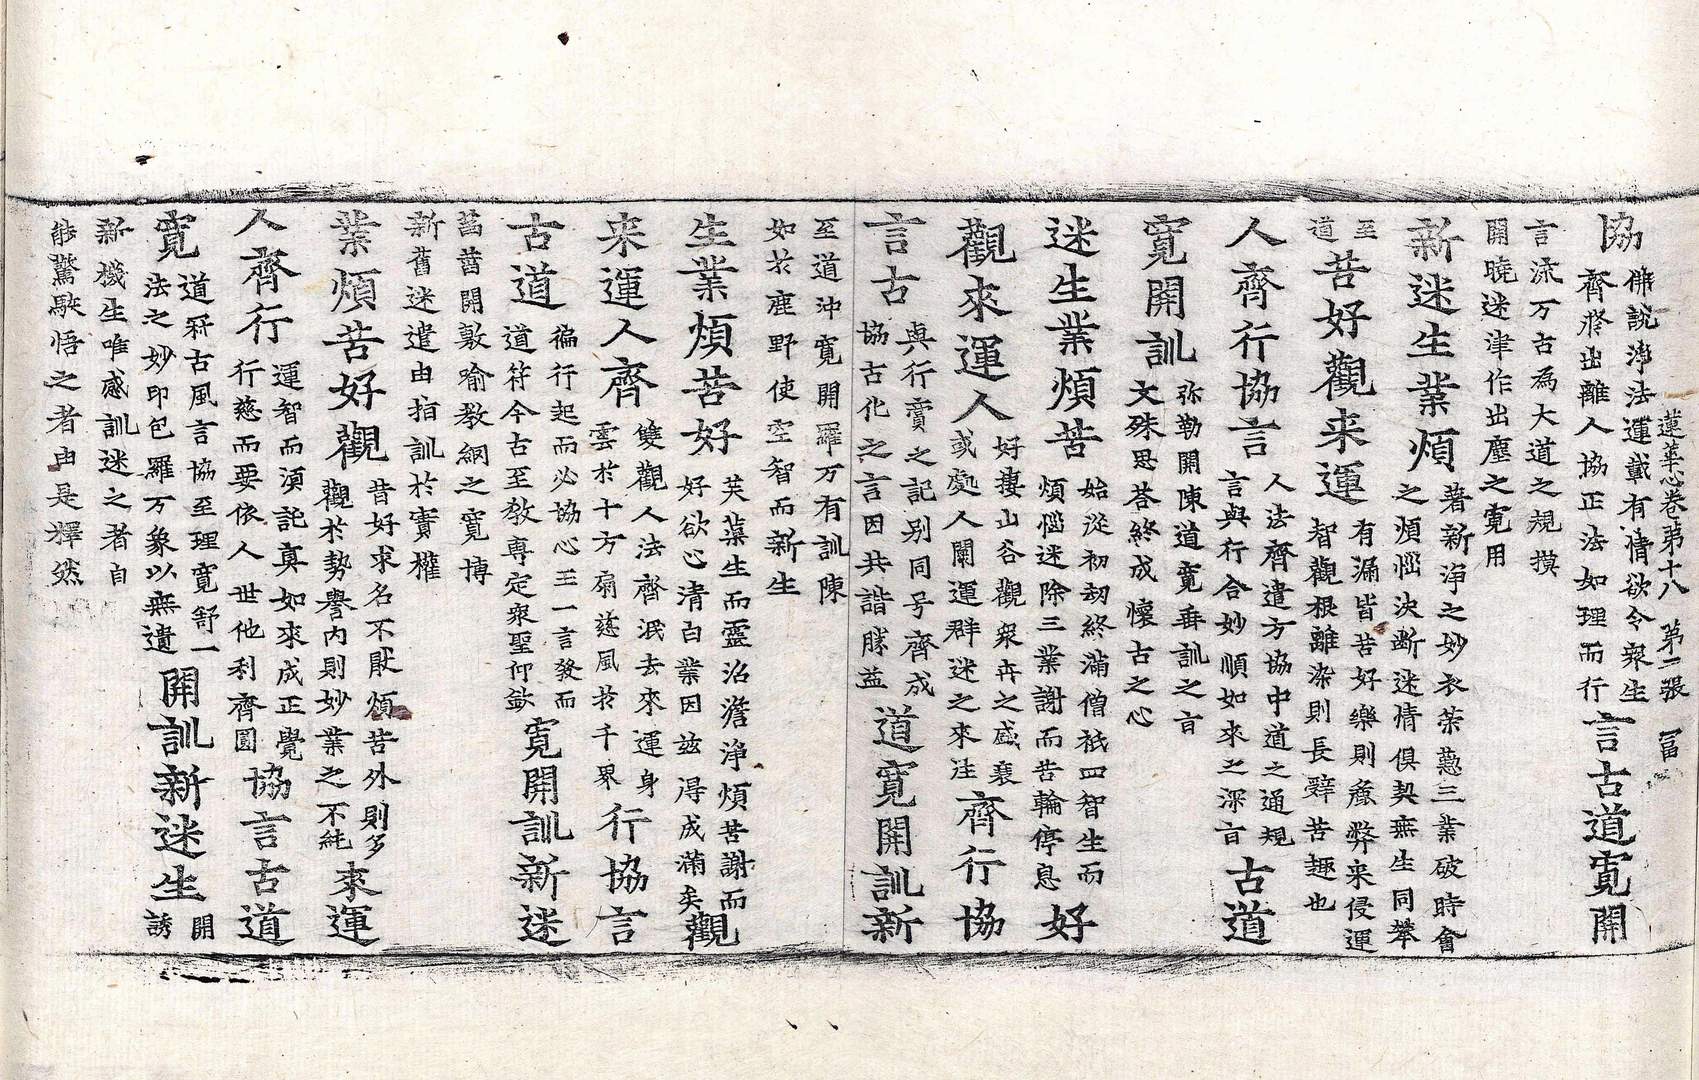 蓮華心卷第十八 第二張 冨
協 佛說淨法運載有情欲令衆生
齊登出離人協正法如理而行 言古道寬開
言流万古為大道之規摸
開曉迷津作出塵之寬用
新迷生業煩 著新淨之妙衣荣蕙三業破時會
之煩惱決断迷情俱契無生同攀
至道 苦好觀来運 有漏皆苦好樂則䘏弊来侵運
智觀根離染則長辤苦趣也
人齊行協言 人法齊遣方協中道之通規
言與行合妙順如來之深旨 古道
寬開訓 弥勒開陳道寬垂訓之旨
文殊思荅終成懷古之心
迷生業煩苦 始從初刼終滿僧祇四智生而
煩惱迷除三業謝而苦輪停息 好
觀來運人 好捿山谷觀衆卉之盛衰
或處人闌運群迷之來往 齊行協
言古 與行賣之記别同号齊成
協古化之言因共諧勝益 道寬開訓新
至道沖寬開羅万有訓陳
如扵鹿野使空智而新生
生業煩苦好 芙蕖生而靈沼澹淨煩苦謝而
好欲心清白業因兹得成滿矣 觀
来運人齊 雙觀人法齊泯去來運身
雲於十方扇慈風扵千界 行協言
古道 徧行起而必協心王一言發而
道符今古至教専定衆聖仰欽 寬開訓新迷
菩薩開敷喻教網之寬博
新舊迷遣由指訓扵實權
業煩苦好觀 昔好求名不猒煩苦外則多
觀扵勢譽内則妙業之不純 來運
人齊行 運智而湏託真如來成正覺
行慈而要依人世他利齊圓 協言古道
寬 道冠古風言協至理寬舒一
法之妙印包羅万象以無遺 開訓新迷生 開誘
新機生唯感訓迷之者自
能驚駭悟之者由是釋然